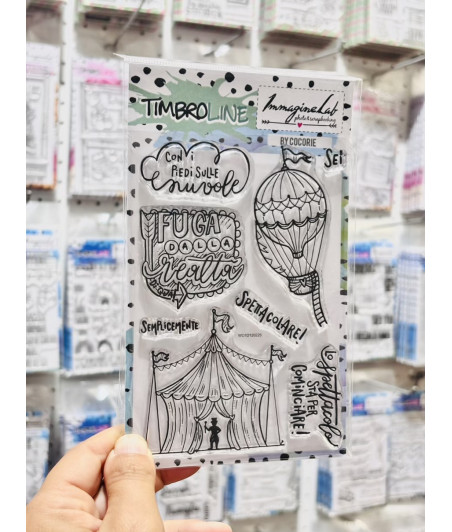 TIMBROLINE
ImmagineLab
photo&scrapbooking
BY COCORIE
CON I
PIEDI SULLE
nuvole
SEI
FUGA
DALLA
realtà
SPETTACOLARE!
SEMPLICEMENTE
Lo spettacolo
STA PER
COMINCIARE!